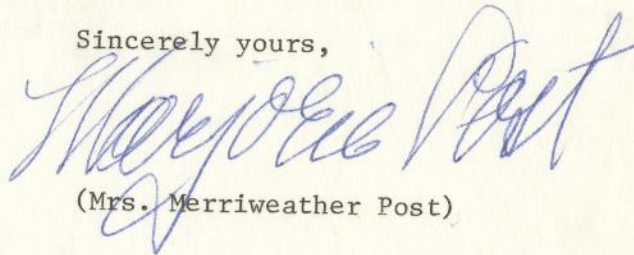 Sincerely yours,
Marjorie Post
(Mrs. Merriweather Post)